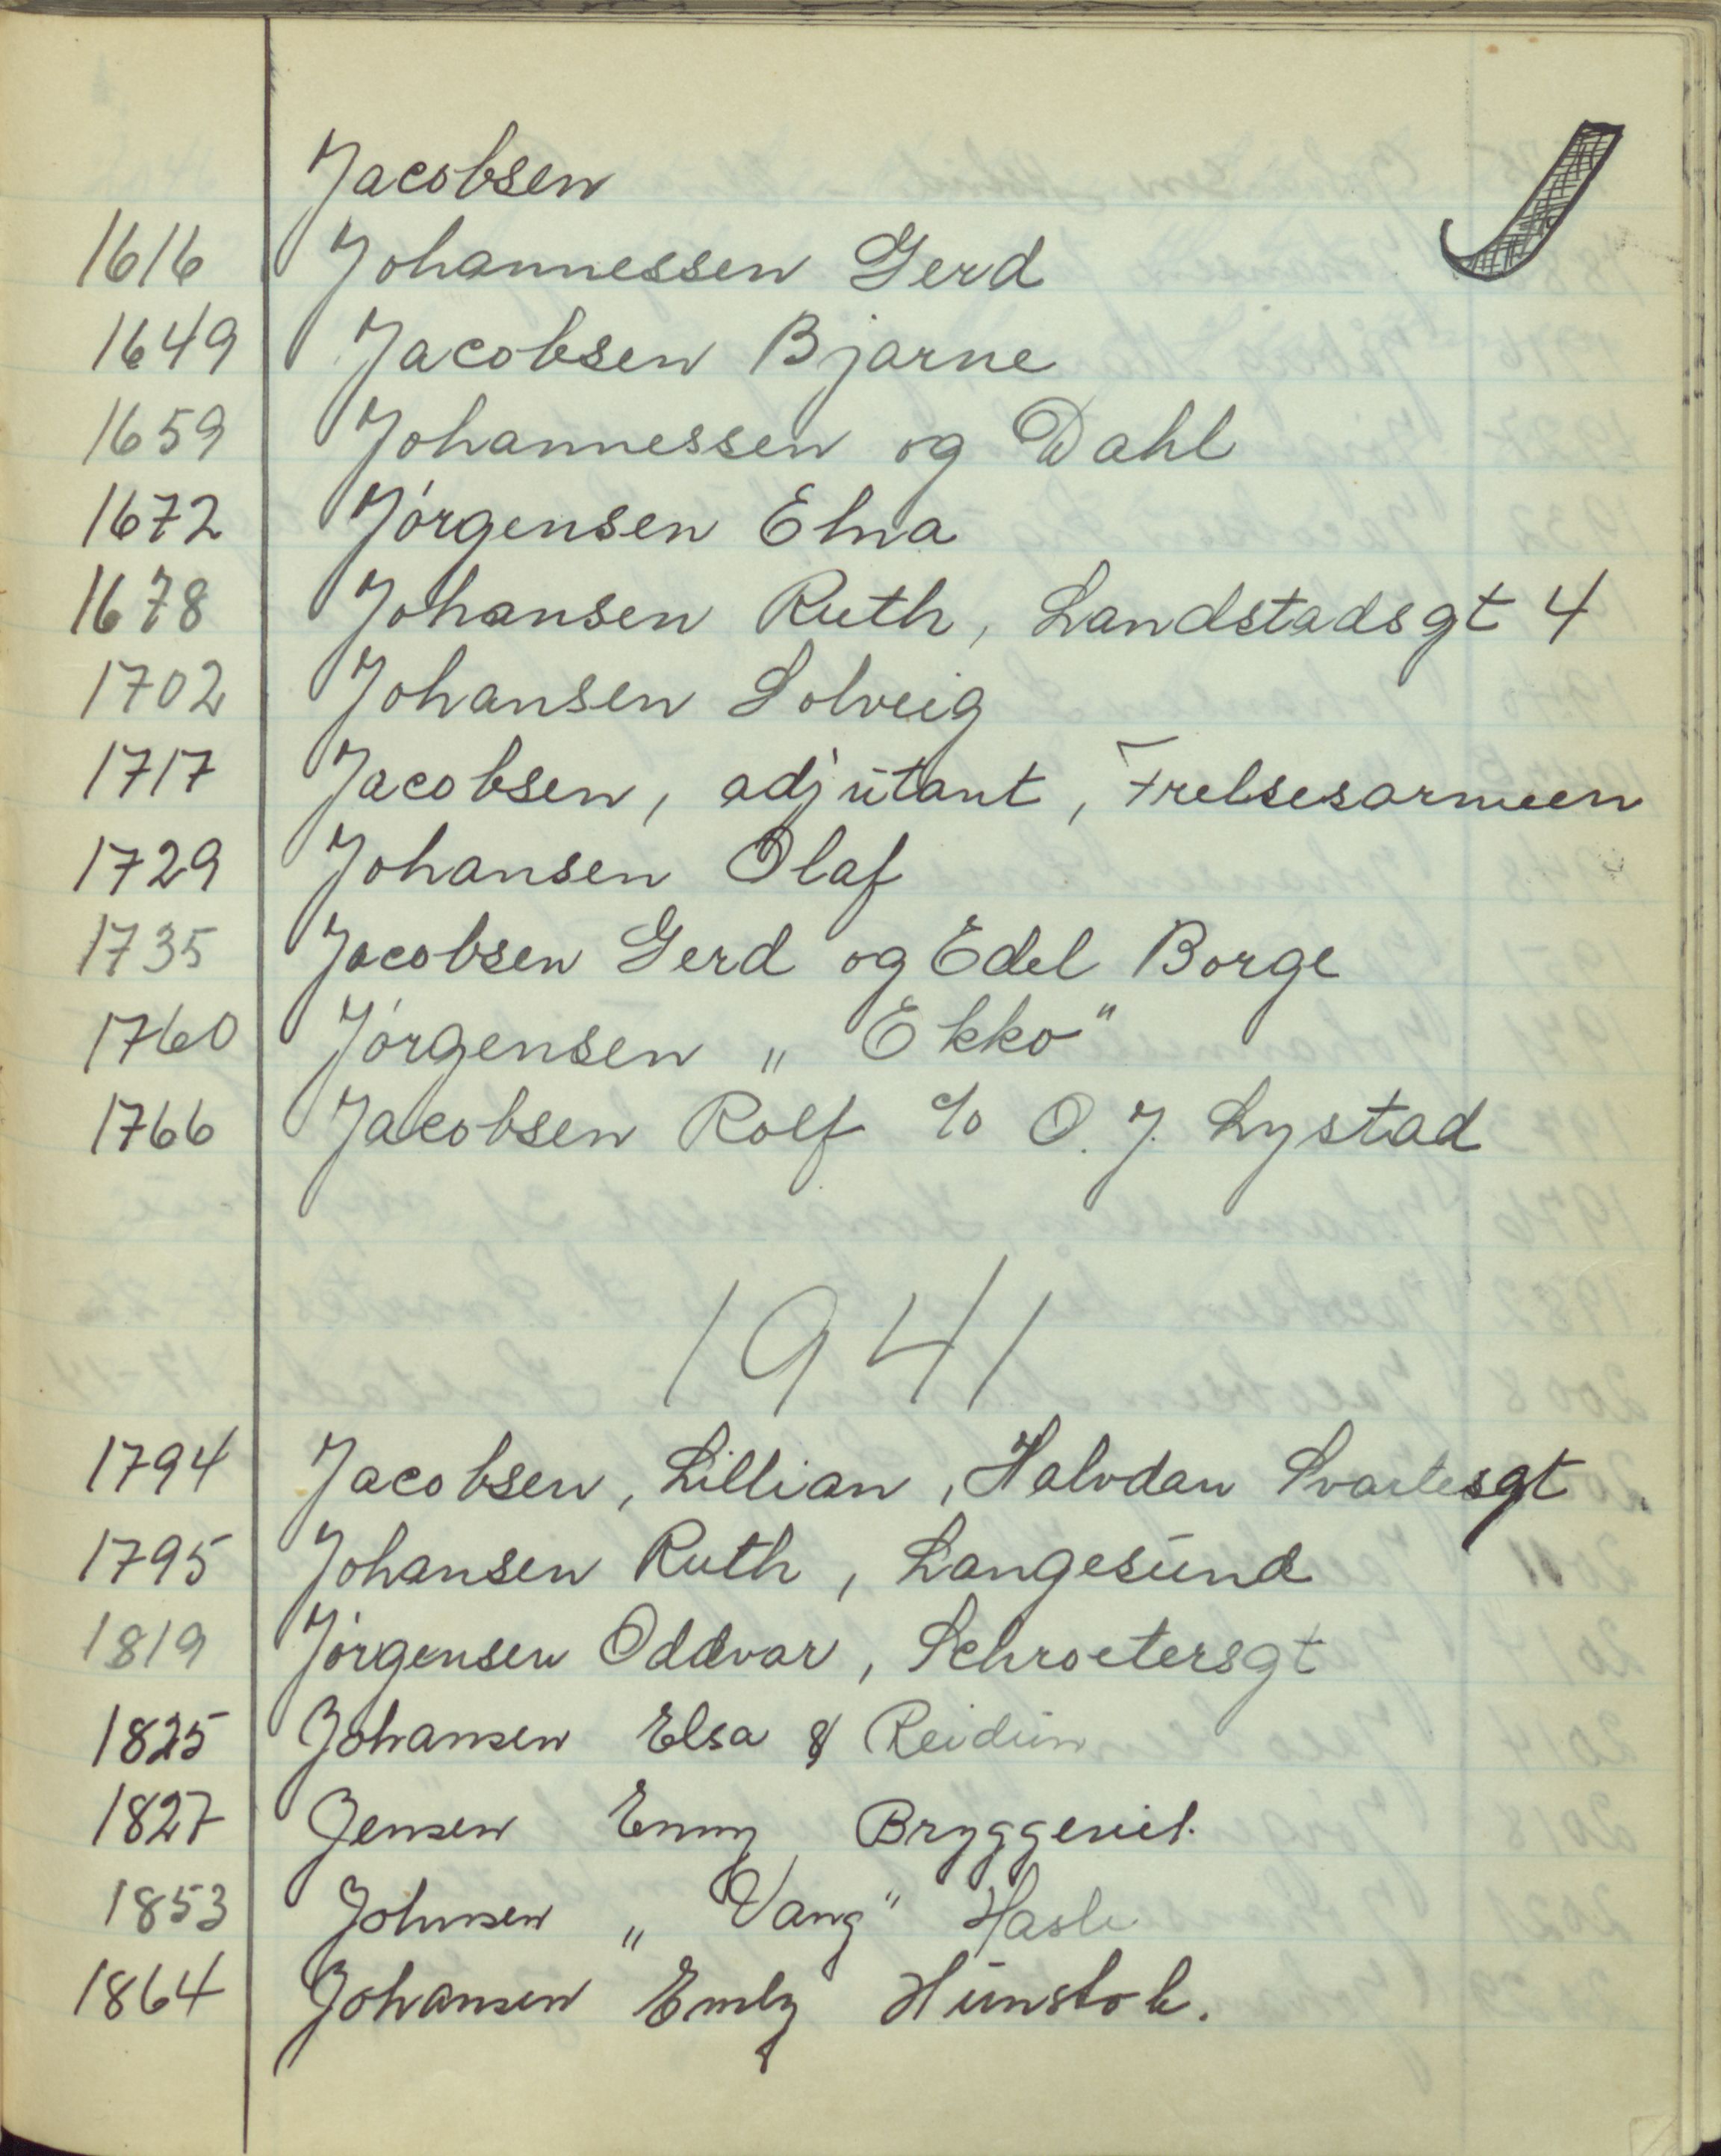 J
Jacobsen
1616 Johannessen Gerd
1649 Jacobsen Bjarne
1659 Johannessen og Dahl
1672 Jórgensen Elna
1678 Johansen Ruth, Landstadsgt 4
1702 Johansen Solveig
1717 Jacobsen, adjutant, Frelsesarmeen
1729 Johansen Olaf
1735 Jacobsen Gerd og Edel Borge
1760 Jórgensen „Ekko"
1766 Jacobsen Rolf c/o O. J. Lystad
1941
1794 Jacobsen, Lillian, Halvdan Svartesgt
1795 Johansen Ruth, Langesund
1819 Jórgensen Oddvar, Schroetersgt
1825 Johansen Elsa & Reidun
1827 Jensen Enny
1853 Johnsen „Vang" Hasle
1864 Johansen Emly